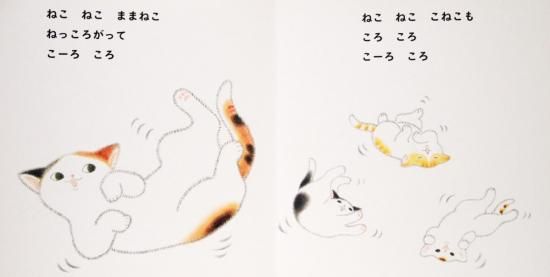 ねこ　ねこ　ままねこ
ねっころがって
こーろ　ころ
ねこ　ねこ　こねこも
ころ　ころ
こーろ　ころ